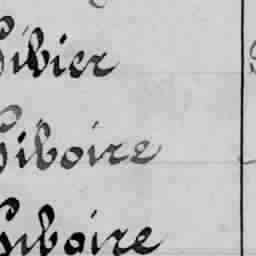 Gibier
Giboire
Giboire